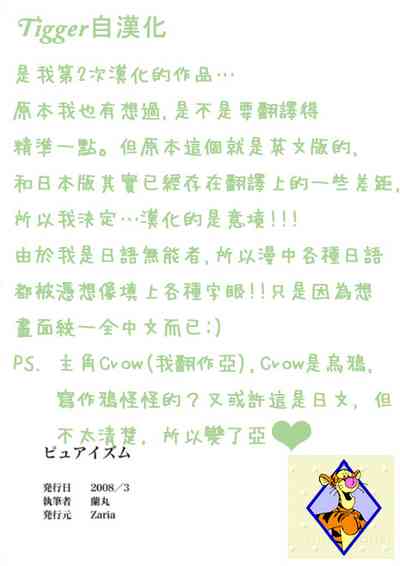 Tigger自漢化
是我第2次漢化的作品…
原本我也有想過,是不是要翻譯得
精準一點。但原本這個就是英文版的,
和日本版其實已經存在翻譯上的一些差距,
所以我決定…漢化的是意境!!!
由於我是日語無能者,所以漫中各種日語
都被憑想像填上各種字眼!!只是因為想
畫面統一全中文而已:)
PS. 主角Crow(我翻作亞),Crow是烏鴉,
寫作鴉怪怪的?又或許這是日文,但
不太清楚,所以變了亞
ピュアイズム
発行日 2008/3
執筆者 蘭丸
発行元 Zaria